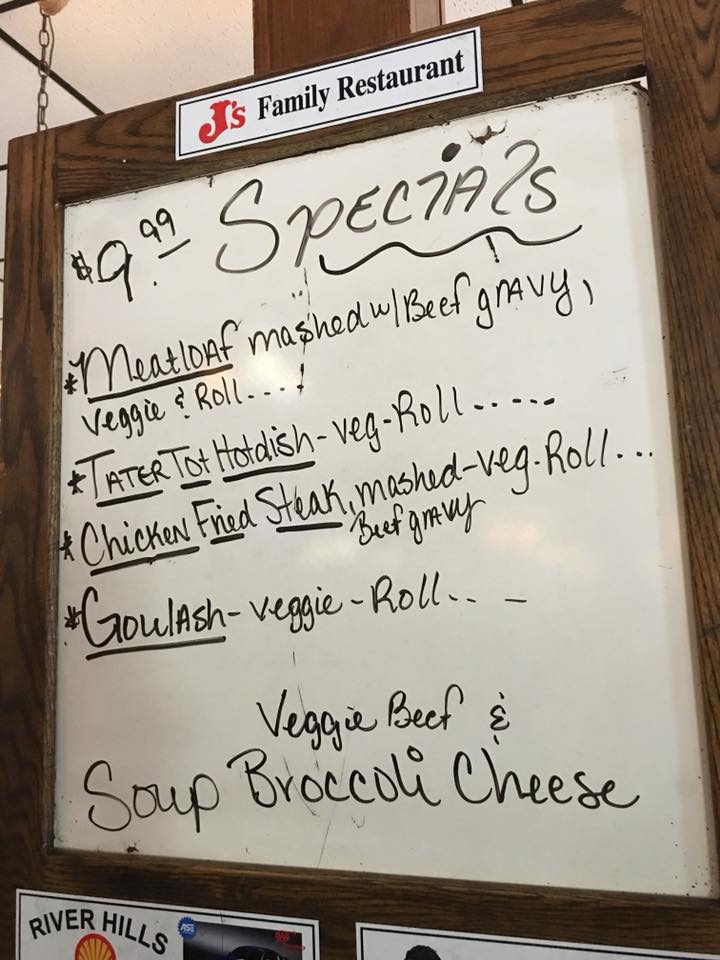 J's Family Restaurant
$9.99 Specials
*Meatloaf mashed w/Beef gravy,
veggie & Roll....
*Tater Tot Hotdish-veg-Roll.....
*Chicken Fried Steak, mashed-veg-Roll...
Beef gravy
*Goulash-veggie-Roll.. -
Veggie Beef &
Soup Broccoli Cheese
RIVER HILLS
ASE